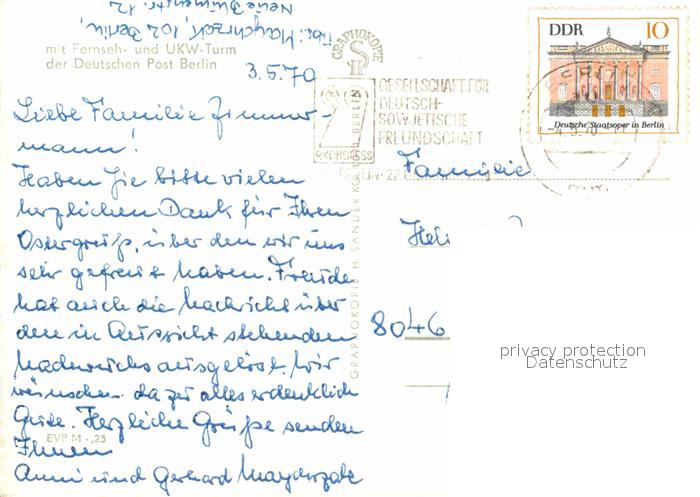 Neue Blumenstr. 12
102 Berlin,
mit Fernseh- und UKW-Turm
der Deutschen Post Berlin
3.5.70
Liebe Familie Zimmer-
mann!
Haben Sie bitte vielen
herzlichen Dank für Ihren
Ostergruß, über den wir uns
sehr gefreut haben. Freude
hat auch die Nachricht über
den in Aussicht stehenden
Nachwuchs ausgelöst. Wir
wünschen dazu alles erdenklich
Gute. Herzliche Grüße senden
Ihnen
Anni und Gerhard
EVP M -,25
GRAPHOKOPIE H. SANDER KG BERLIN
GRAPHOKOPIE
GESELLSCHAFT FÜR
DEUTSCH-
SOWJETISCHE
FREUNDSCHAFT
KONGRESS
DDR 10
Deutsche Staatsoper in Berlin
Familie
8046
privacy protection
Datenschutz